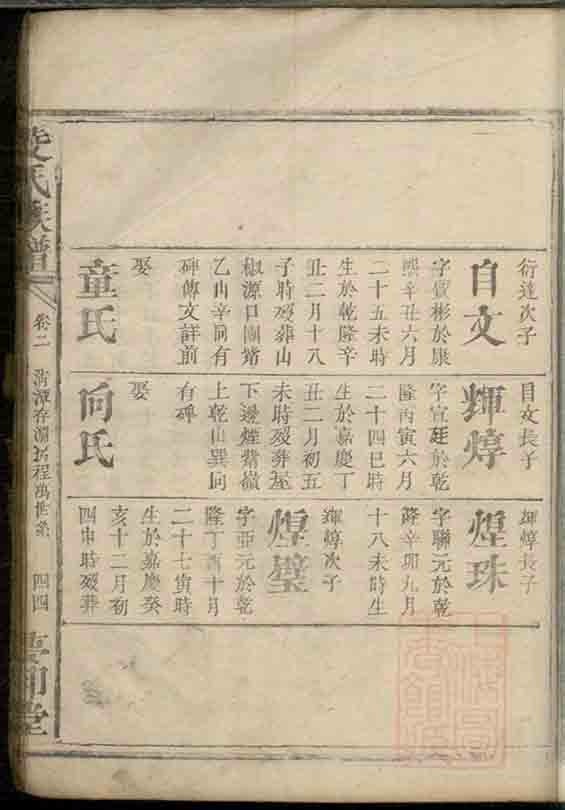 衍達次子
自文
字質彬於康
熙辛丑六月
二十五未時
生於乾隆辛
丑二月十八
子時歿葬山
椒源口團堵
乙山辛向有
碑傳文詳前
娶
童氏
自文長子
輝焞
字宣廷於乾
隆丙寅六月
二十四巳時
生於嘉慶丁
丑二月初五
未時歿葬屋
下邊煙紫嶺
上乾山巽向
有碑
娶
向氏
輝焞長子
煌珠
字聯元於乾
隆辛卯九月
十八未時生
輝焞次子
煌璧
字亞元於乾
隆丁酉十月
二十七寅時
生於嘉慶癸
亥十二月初
四申時歿葬
氏族譜
卷二
四四
堂